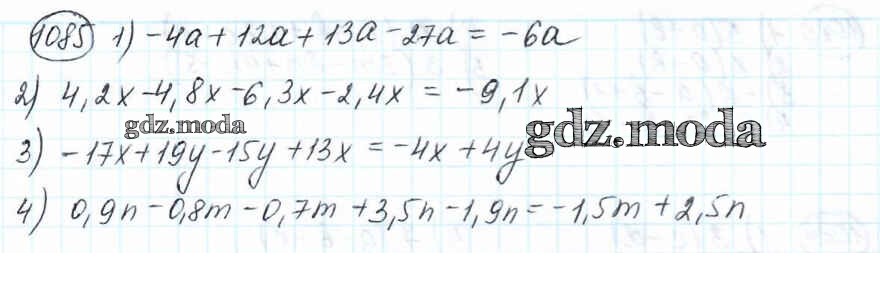 1085 1) -4a + 12a + 13a - 27a = -6a
2) 4,2x - 4,8x - 6,3x - 2,4x = -9,1x
gdz.moda
gdz.moda
3) -17x + 19y - 15y + 13x = -4x + 4y
4) 0,9n - 0,8m - 0,7m + 3,5n - 1,9n = -1,5m + 2,5n